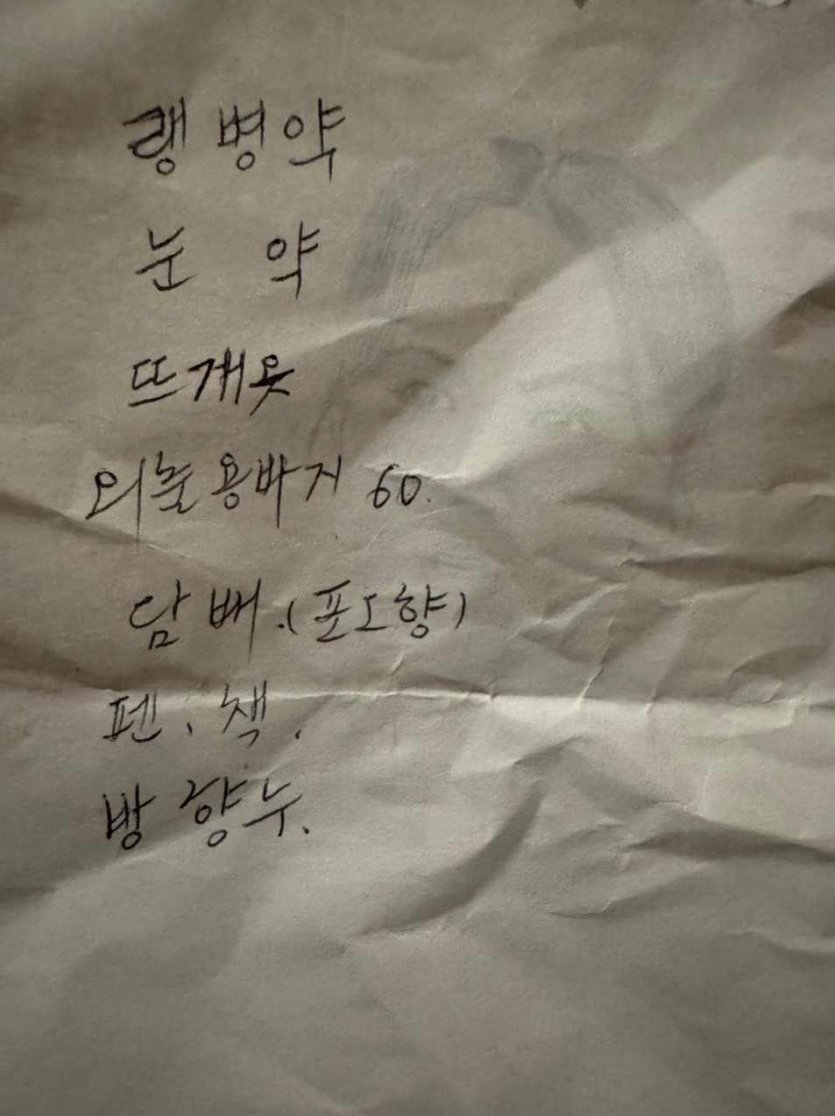 랭병약
눈 약
뜨개옷
외출용바지 60.
담배.(포도향)
펜, 책.
방향누.